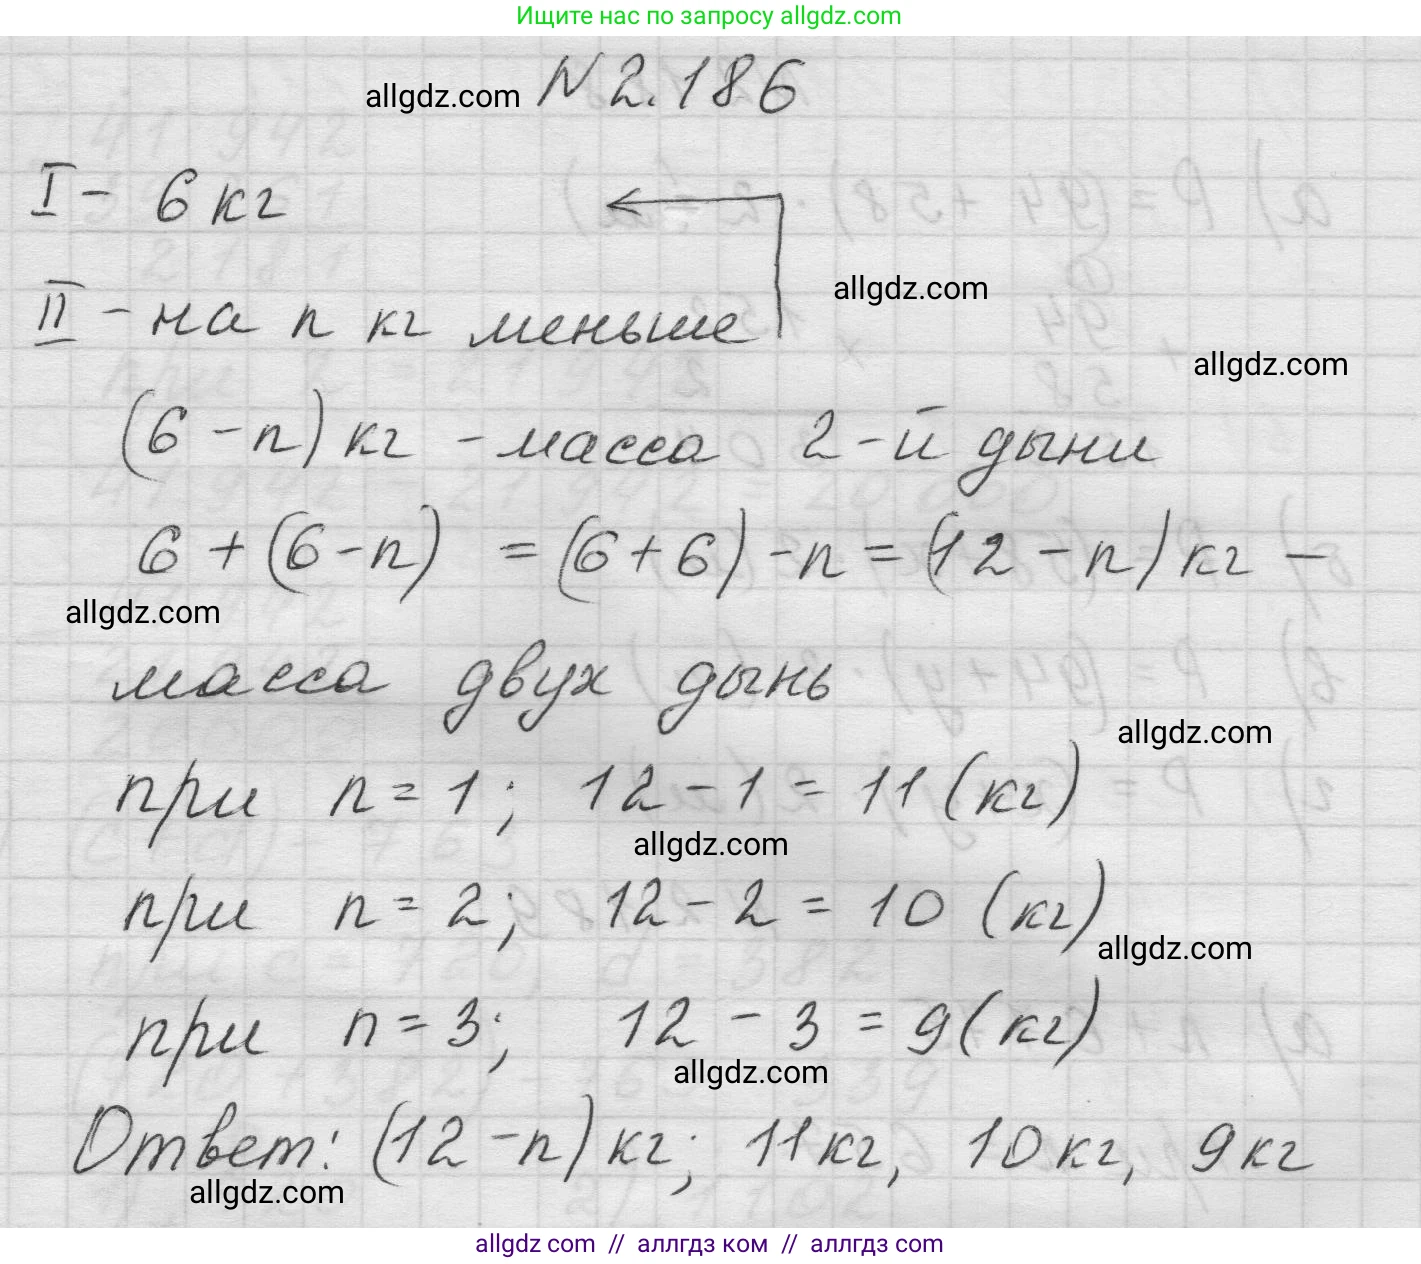 Ищите нас по запросу allgdz.com
allgdz.com N 2.186
I - 6 кг
allgdz.com
II - на n кг меньше
allgdz.com
(6 - n) кг - масса 2-й дыни
6 + (6 - n) = (6 + 6) - n = (12 - n) кг -
allgdz.com
масса двух дынь
allgdz.com
при n = 1; 12 - 1 = 11 (кг)
allgdz.com
при n = 2; 12 - 2 = 10 (кг)
allgdz.com
при n = 3; 12 - 3 = 9 (кг)
allgdz.com
Ответ: (12 - n) кг; 11 кг, 10 кг, 9 кг
allgdz.com
allgdz com // аллгдз ком // аллгдз com